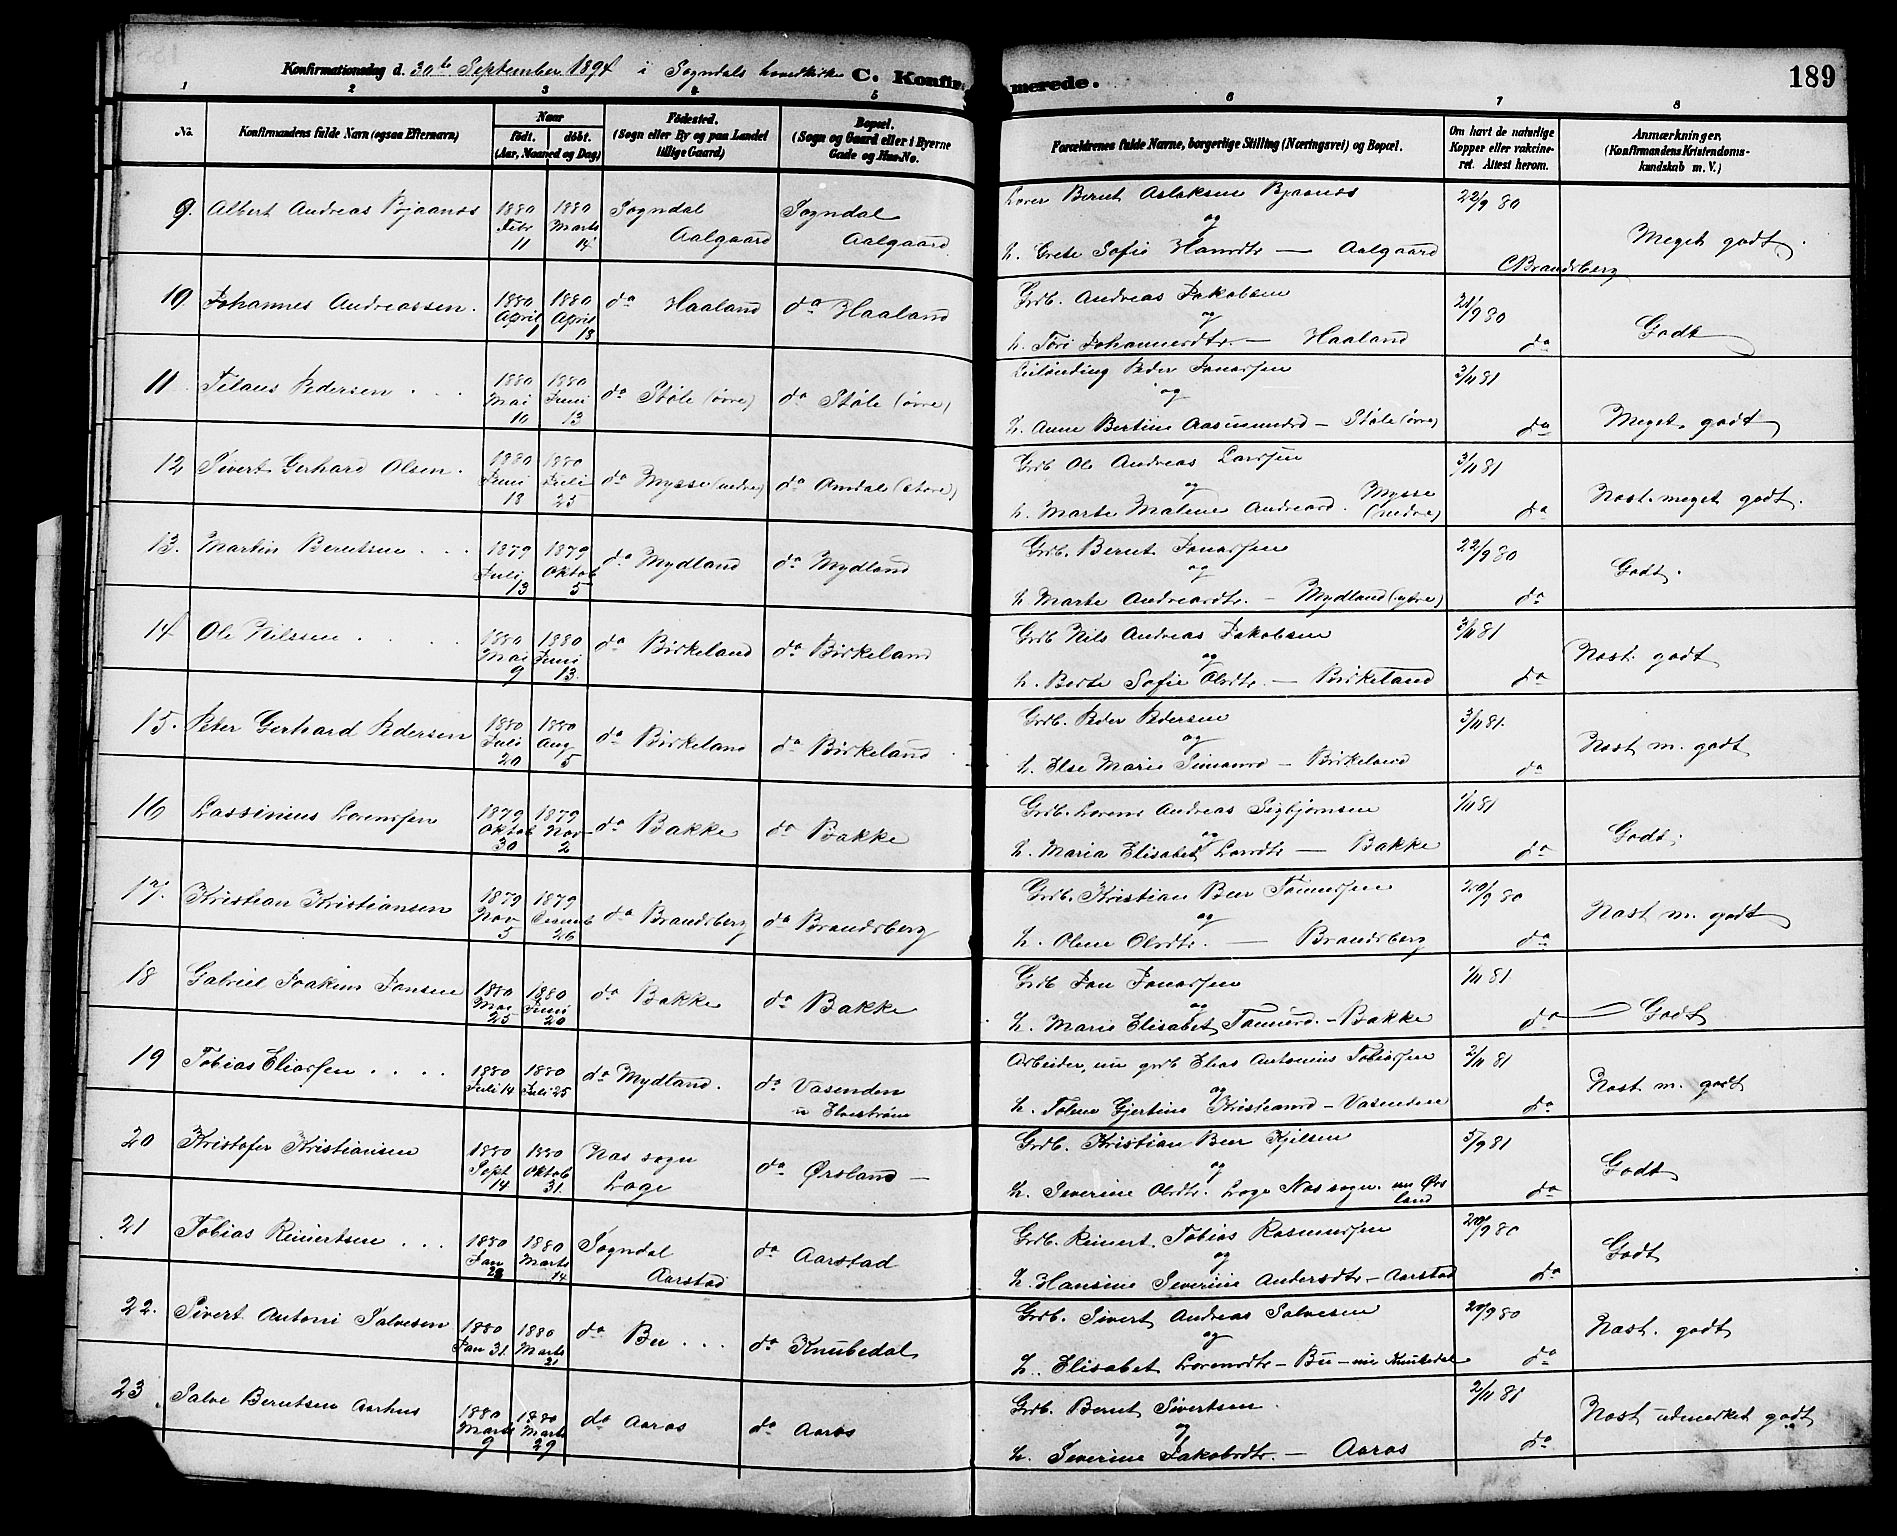 Konfirmationsdag d. 30te September 1894 i Sogndals hovedkirke C. Konfirmerede. 189
1 2 3 4 5 6 7 8
No. Konfirmandens fulde Navn (ogsaa Efternavn) Naar födt. döbt. (Aar, Maaned og Dag) Födested. (Sogn eller By og paa Landet tillige Gaard) Bopæl. (Sogn og Gaard eller i Byerne Gade og Hus-No. Forældrenes fulde Navne, borgerlige Stilling (Næringsvei) og Bopæl. Om havt de naturlige Kopper eller vakcineret. Attest herom. Anmærkninger. (Konfirmandens Kristendomskundskab m. V.)
9. Albert Andreas Bjaanæs 1880 Febr 11 1880 Marts 14 Sogndal Aalgaard Sogndal Aalgaard Bernt Aslaksen Bjaanæs 22/9 80
og
h. Grete Sofie Hansdtr — Aalgaard CBrandsberg Meget godt.
10 Johannes Andreassen. 1880 April 1 1880 April 18 do Haaland do Haaland Grdb. Andreas Jakobsen 21/9 80
og
h. Tori Johannesdtr. — Haaland do Godt
11. Pedersen . . . 1880 Mai 10 1880 Juni 13 do Støle (øvre) do Støle (øvre) Leilænding Peder Jonassen 3/11 81
og
h. Anne Bertine Aasmundsd — Støle (øvre) do Meget godt
12 Sivert Gerhard Olsen. 1880 Juni 18 1880 Juli 25 do Mysse (nedre) do Amdal (store) Grdb Ole Andreas Larssen 3/11 81
og
h. Marte Malene Andreasd. Mysse (nedre) do Næst meget godt.
13. Martin Berntsen . . . 1879 Juli 13 1879 Oktob 5 do Mydland do Mydland Grdb. Bernt Jonassen 22/9 80
og
h Marte Andreasdtr. — Mydland (ytre) do Godt.
14 Ole Nilssen . . . . 1880 Mai 9 1880 Juni 13. do Birkeland do Birkeland Grdb Nils Andreas Jakobsen 3/11 81
og
h. Berte Sofie Olsdtr. — Birkeland do Næst godt
15. Peter Gerhard Pedersen 1880 Juli 20 1880 Aug 5 do Birkeland do Birkeland Grdb. Peder Pedersen 3/11 81.
og
h. Else Marie Simonsd — Birkeland do Næst m. godt
16 Lassinius Lorenssen 1879 Oktob 30 1879 Nov 2 do Bakke do Bakke Grdb. Lorens Andreas Sigbjørnsen 1/11 81
og
h. Maria Elisabet Larsdtr — Bakke do Godt.
17. Kristian Kristiansen 1879 Nov 5 1879 Decemb 26 do Brandsberg do Brandsberg Grdb. Kristian Beer Tønnessen 20/9 80
og
h. Olene Olsdtr. — Brandsberg do Næst m. godt
18 Gabriel Joakim Jansen 1880 Mai 25 1880 Juni 20 do Bakke do Bakke Grdb Jan Jonassen 1/11 81
og
h. Marie Elisabet Tønnesd. — Bakke do — Godt
19 Tobias Eliassen . . . . 1880 Juli 14 1880 Juli 25 do Mydland. do Vasenden Arbeider, nu grdb Elias Antonius Tobiassen 2/11 81
og
h. Tolene Gjertine Kristiansd — Vasenden do Næst m. godt
20 Kristofer Kristiansen 1880 Sept 14 1880 Oktob 31. Næs sogn Loge do Ørsland — Grdb. Kristian Beer Kjelsen 5/9 81
og
h. Severine Olsdtr. Loge Næs sogn. nu Ørsland do Godt
21 Tobias Reinertsen . . . 1880 Jan 28 1880 Marts 14 Sogndal Aarstad do Aarstad Grdb. Reinert Tobias Rasmussen 20/9 80
og
h. Hansine Severine Andersdtr — Aarstad do Godt
22. Sivert Antoni Salvesen 1880 Jan 31. 1880 Marts 21 do Bu . . . do Knubedal Grdb. Sivert Andreas Salvesen 20/9 80
og
h. Elisabet Lorensdtr — Bu — nu Knubedal do Næst. godt
23 Salve Berntsen Aarhus 1880 Marts 9 1880 Marts 29 do Aaros do Aaros Grdb. Bernt Sivertsen. 2/11 81
og
h. Severine Jakobsdtr. — Aaros do Næst udmerket godt